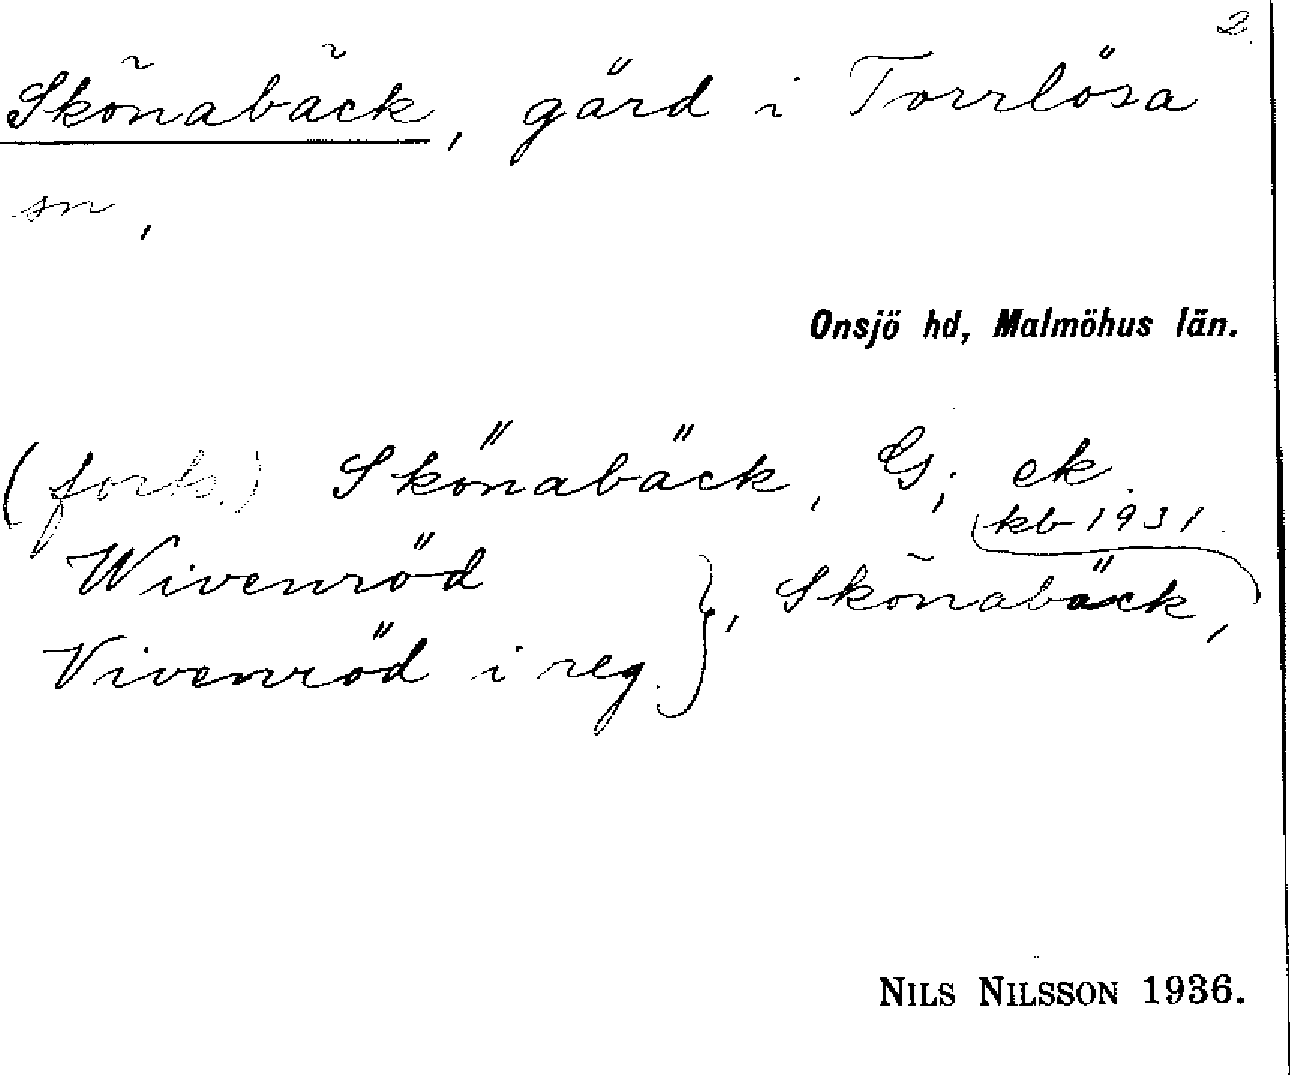 2.
Skönabäck, gård i Torrlösa
sn,
Onsjö hd, Malmöhus län.
(forts.) Skönabäck, G; ek.
kb 1931
Wivenröd
Skönabäck,
Vivenröd i reg.
NILS NILSSON 1936.